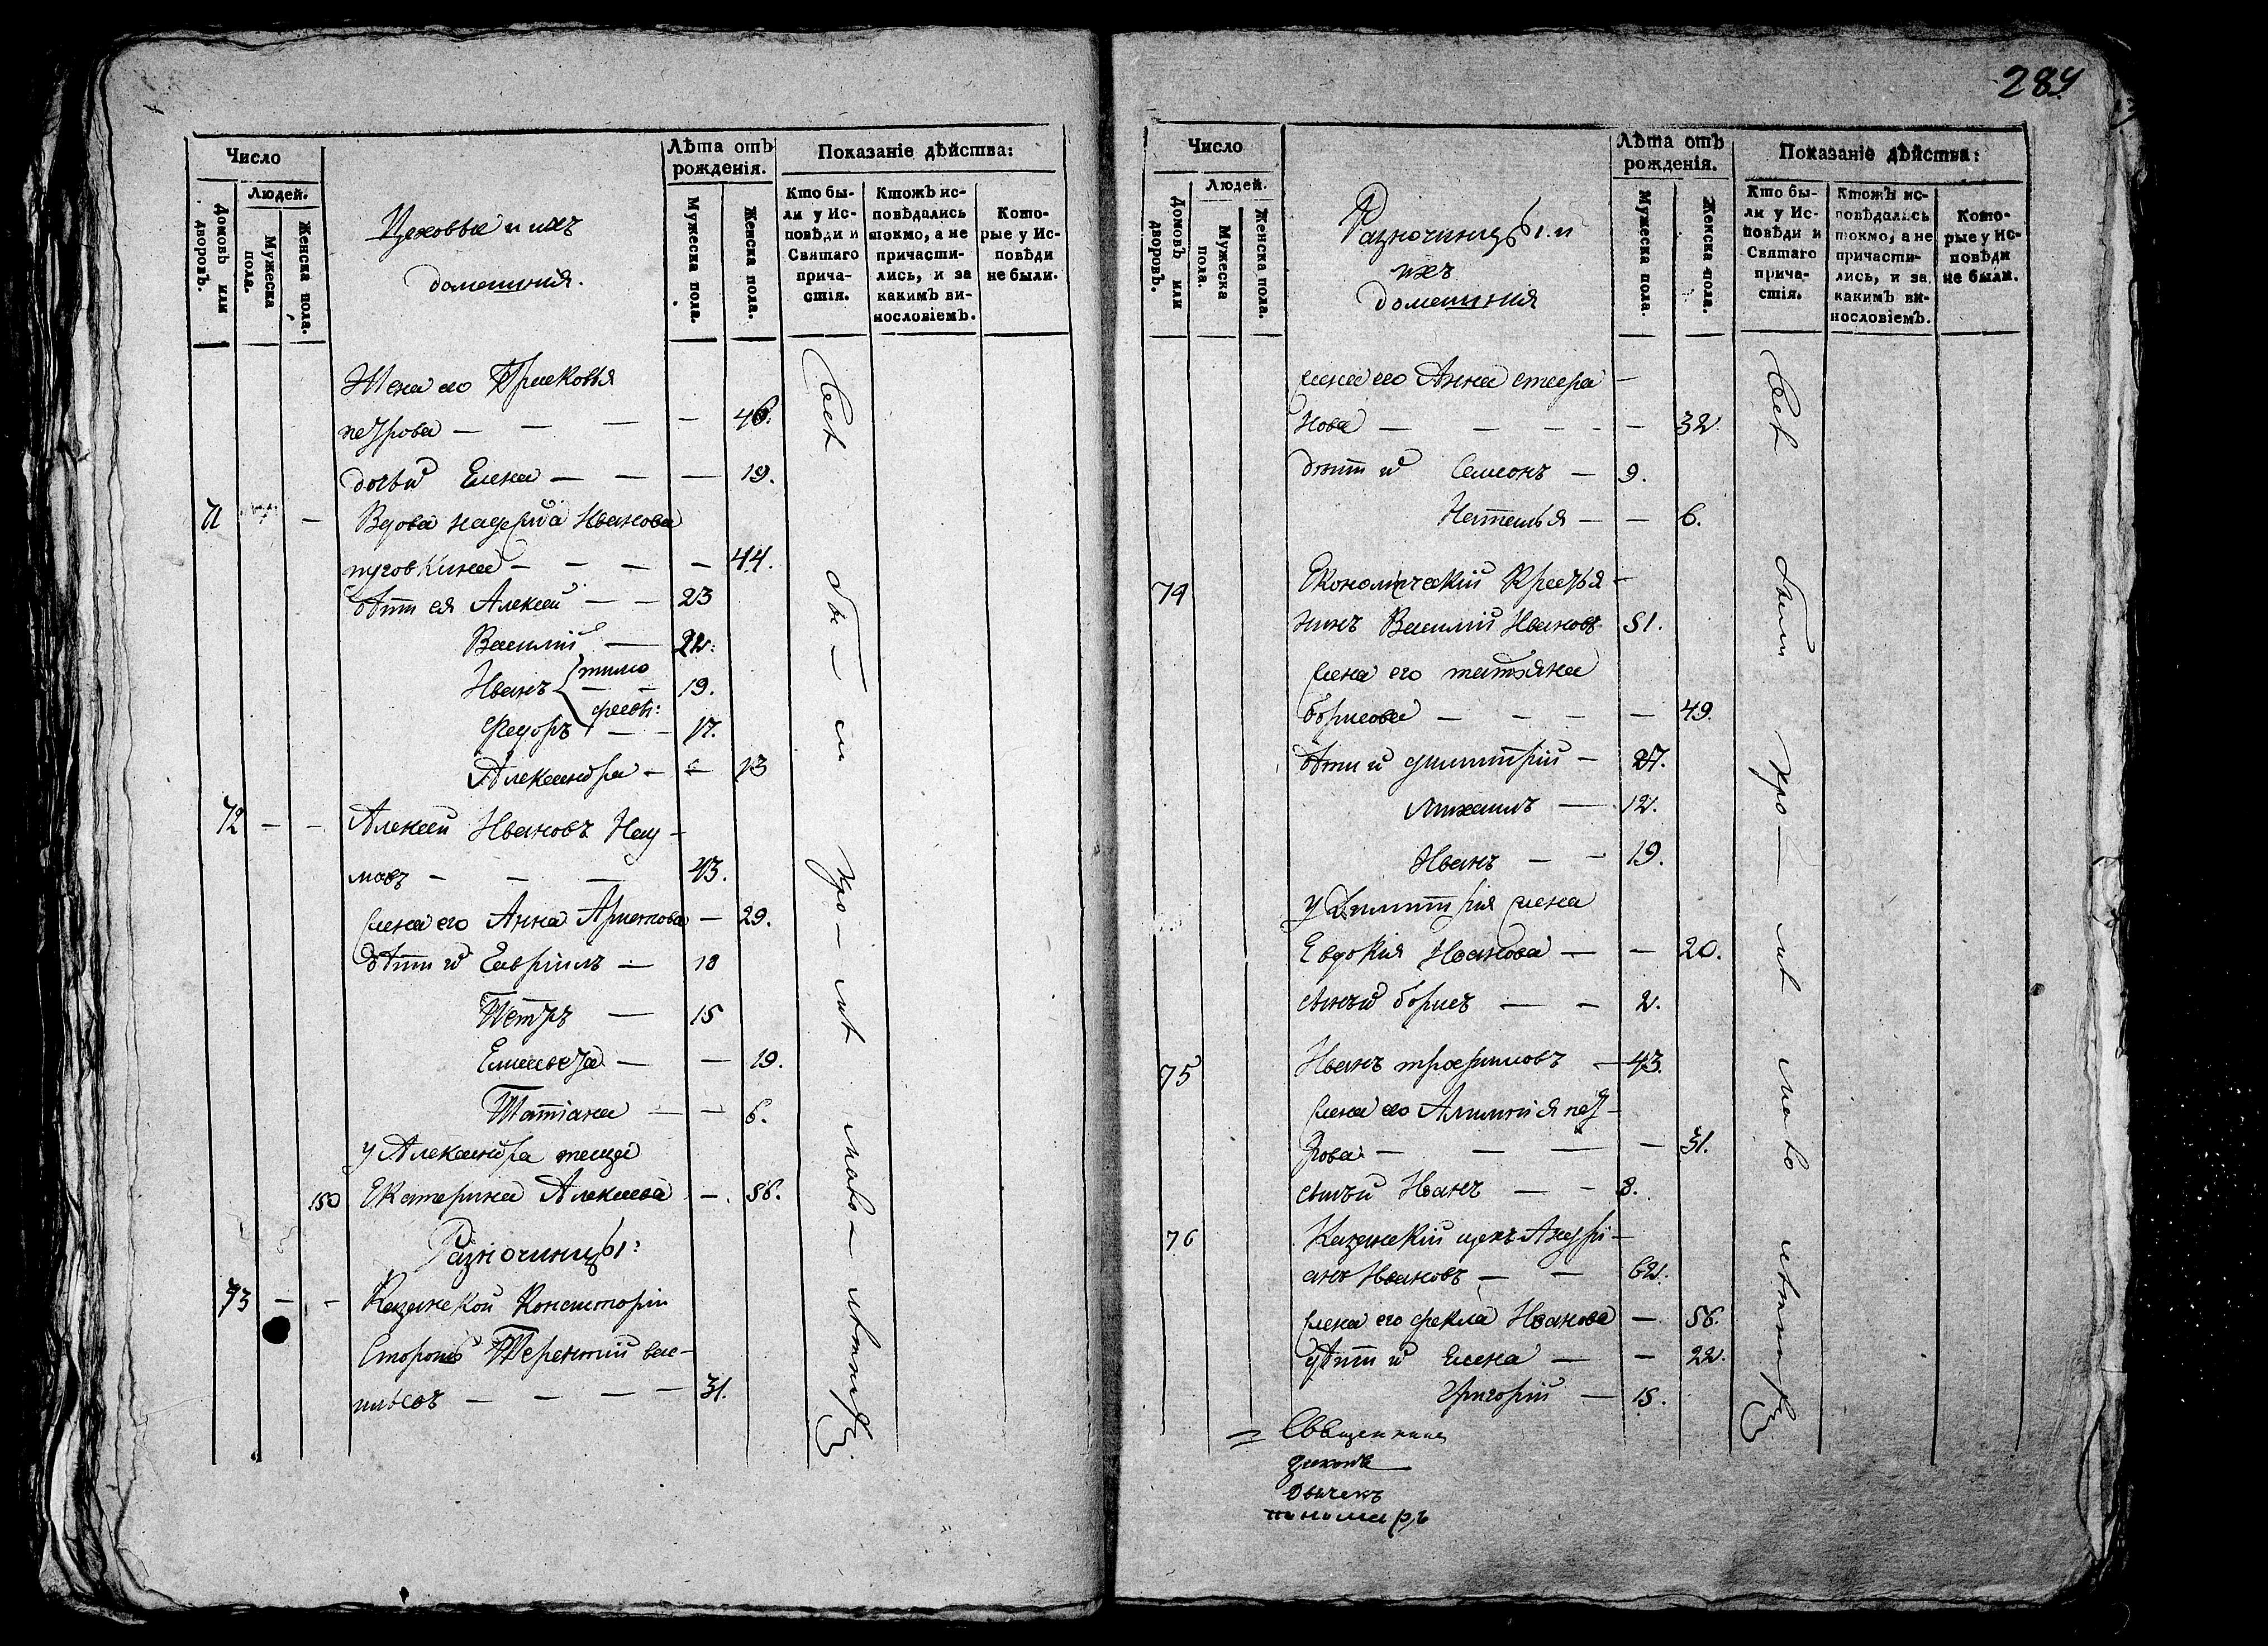 Число
Людей.
Домовъ или дворовъ.
Мужеска пола.
Женска пола.
Цеховые и ихъ
домашния.
Лѣта отъ рожденія.
Мужеска пола.
Женска пола.
Показаніе дѣйства:
Кто бы-
ли у Ис-
повѣди и
Святаго
прича-
стія.
Ктожъ ис-
повѣдались
токмо, а не
причасти-
лись, и за
какимъ ви-
нословіемъ.
Кото-
рые у Ис-
повѣди
не были.
Жена его Прасковья
петрова — — — — 46.
дочь и Елена — — — 19.
71 — Вдова надежда Иванова
пуговкина — — — — 44.
дѣти ея Алексей — — 23
Василий — 22.
Иванъ — — 19.
тимо
феевы:
Федоръ — — 17.
Александра — — 13
72 — — Алексей Ивановъ Нау-
мовъ — — — 43.
жена его Анна — 29.
дѣти и Гавріилъ — 18
Петръ — 15
— — 19.
Татіана — — 6.
у Александра теща
150 Екатерина Алексеева — 56.
Разночинцы:
73 — — Казанской Консисторіи
Сторожъ Терентий васи-
льевъ — — — — 31.
Всѣ бы — ли
284
Число
Людей.
Домовъ или дворовъ.
Мужеска пола.
Женска пола.
Разночинцы и
ихъ
домашния
Лѣта отъ рожденія.
Мужеска пола.
Женска пола.
Показаніе дѣйства:
Кто бы-
ли у Ис-
повѣди и
Святаго
прича-
стія.
Ктожъ ис-
повѣдались
токмо, а не
причасти-
лись, и за
какимъ ви-
нословіемъ.
Кото-
рые у Ис-
повѣди
не были.
жена его Анна
нова — — — — — 32
дѣти и Симеонъ — 9.
Наталья — — 6.
74 Економический Крестья-
нинъ Василий Ивановъ 51.
жена его татьяна
борисова — — — — 49.
дѣти и димитрий — 27.
Михаилъ — 12.
Иванъ — — 19.
у Димитрия жена
Евдокия Иванова — — 20.
сынъ и борисъ — — 2.
75 Иванъ трофимовъ — 43.
жена его пет-
рова — — — — 31.
сынъ и Иванъ — — 8.
76 Казанский цехъ Андри-
анъ Ивановъ — — 62.
жена его фекла Иванова — 56.
дѣти и Елена — — 22.
Григорий — 15.
Всѣ были
Священникъ
диконъ
дьячекъ
пономаръ